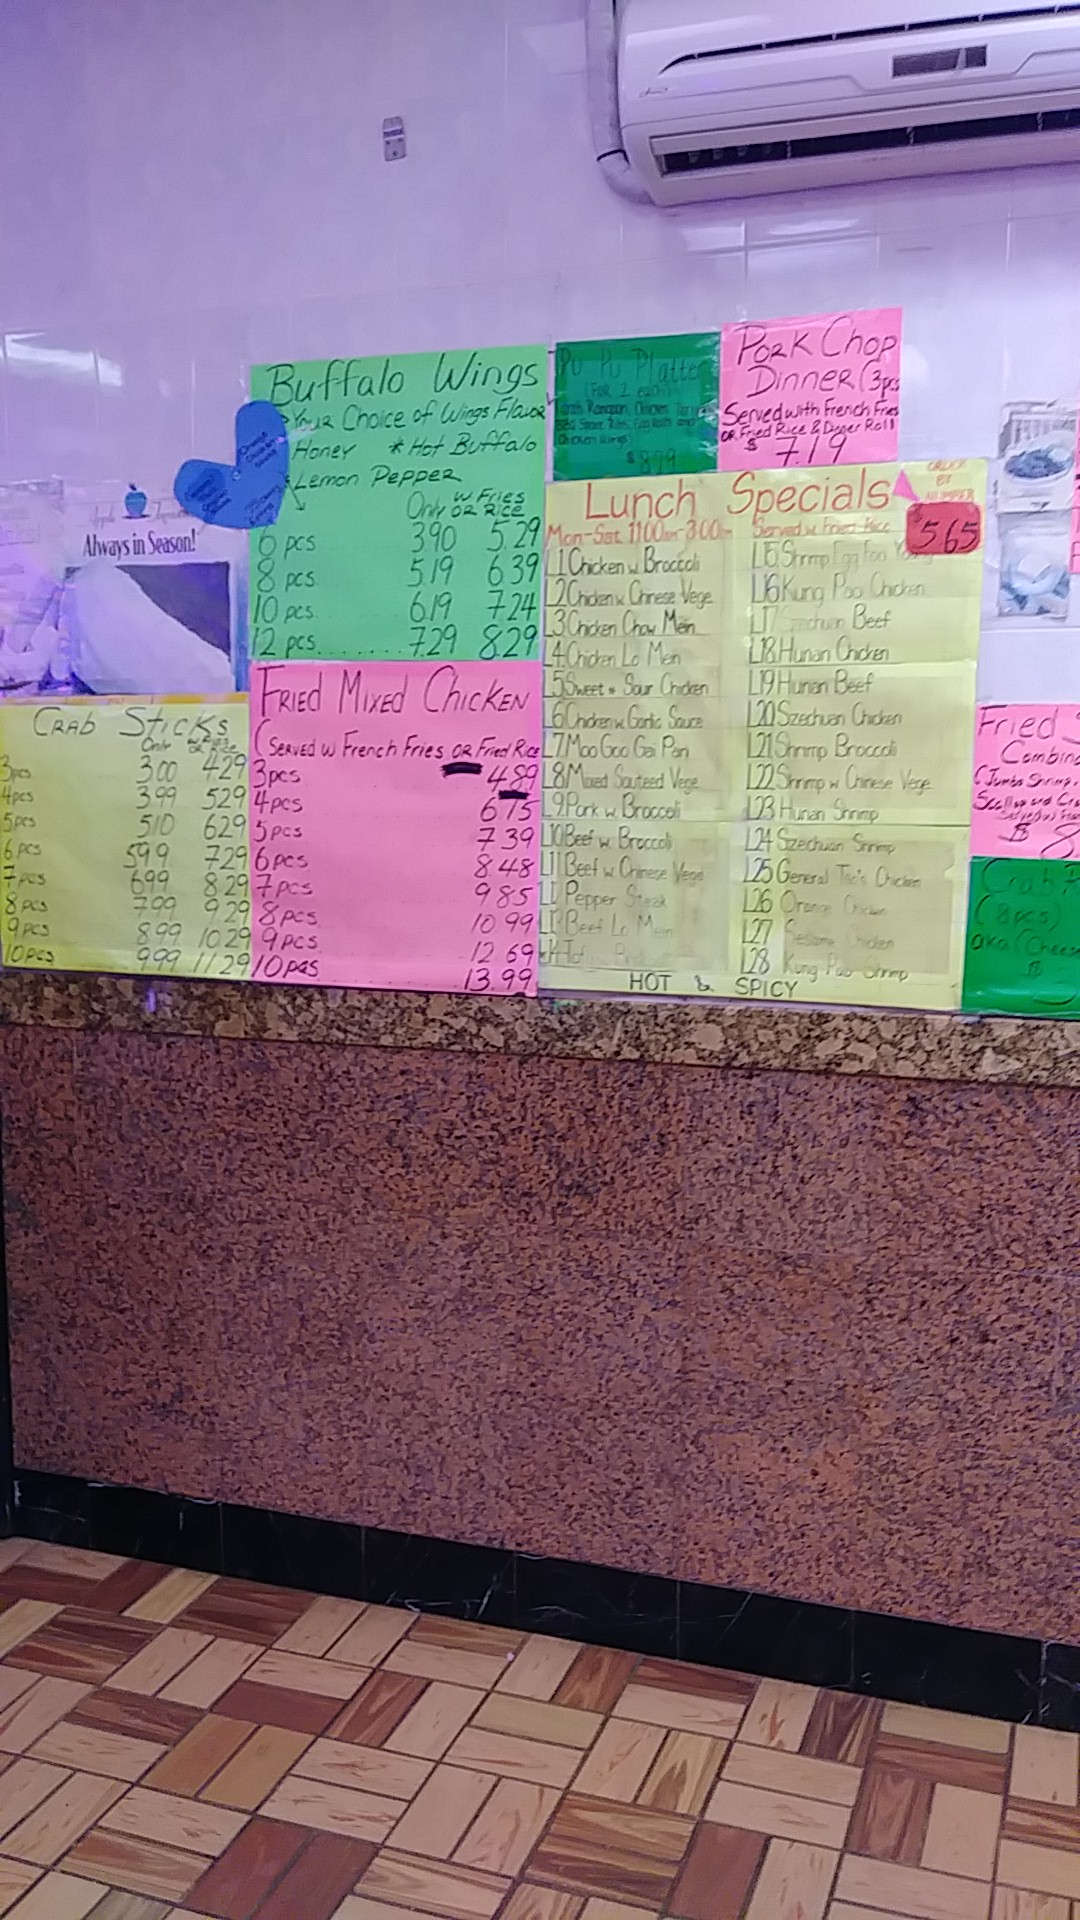 Buffalo Wings
Your Choice of Wings Flavor
Honey * Hot Buffalo
Lemon Pepper
Only w. Fries OR Rice
6 pcs 3.90 5.29
8 pcs 5.19 6.39
10 pcs 6.19 7.24
12 pcs........ 7.29 8.29
Pu Pu Platte
(For 2 each)
$ 8.79
Pork Chop
Dinner (3pcs
Served with French Fries
OR Fried Rice & Dinner Roll
$ 7.19
Always in Season!
Crab Sticks
Only w. Fries OR Rice
3pcs 3.00 4.29
4pcs 3.99 5.29
5pcs 5.10 6.29
6pcs 5.99 7.29
7pcs 6.99 8.29
8pcs 7.99 9.29
9pcs 8.99 10.29
10pcs 9.99 11.29
Fried Mixed Chicken
(Served w French Fries OR Fried Rice
3pcs 4.89
4pcs 6.15
5pcs 7.39
6pcs 8.48
7pcs 9.85
8pcs 10.99
9pcs 12.69
10pcs 13.99
Lunch Specials
ORDER BY NUMBER
$5.65
Mon-Sat 11:00am-3:00pm
Served w. Fried Rice
L1 Chicken w. Broccoli
L2 Chicken w. Chinese Vege.
L3 Chicken Chow Mein
L4 Chicken Lo Mein
L5 Sweet & Sour Chicken
L6 Chicken w. Garlic Sauce
L7 Moo Goo Gai Pan
L8 Mixed Sauteed Vege.
L9 Pork w. Broccoli
L10 Beef w. Broccoli
L11 Beef w. Chinese Vege
Pepper Steak
Beef Lo Mein
L15 Shrimp Egg Foo Young
L16 Kung Pao Chicken
L17 Szechuan Beef
L18 Hunan Chicken
L19 Hunan Beef
L20 Szechuan Chicken
L21 Shrimp Broccoli
L22 Shrimp w Chinese Vege.
L23 Hunan Shrimp
L24 Szechuan Shrimp
L25 General Tso's Chicken
L26 Orange Chicken
L27 Sesame Chicken
L28 Kung Pao Shrimp
HOT & SPICY
Fried
Combin
(Jumbo Shrimp,
Scallop and Cra
$ 8
Crab
(8pcs)
aka (Cheese
$